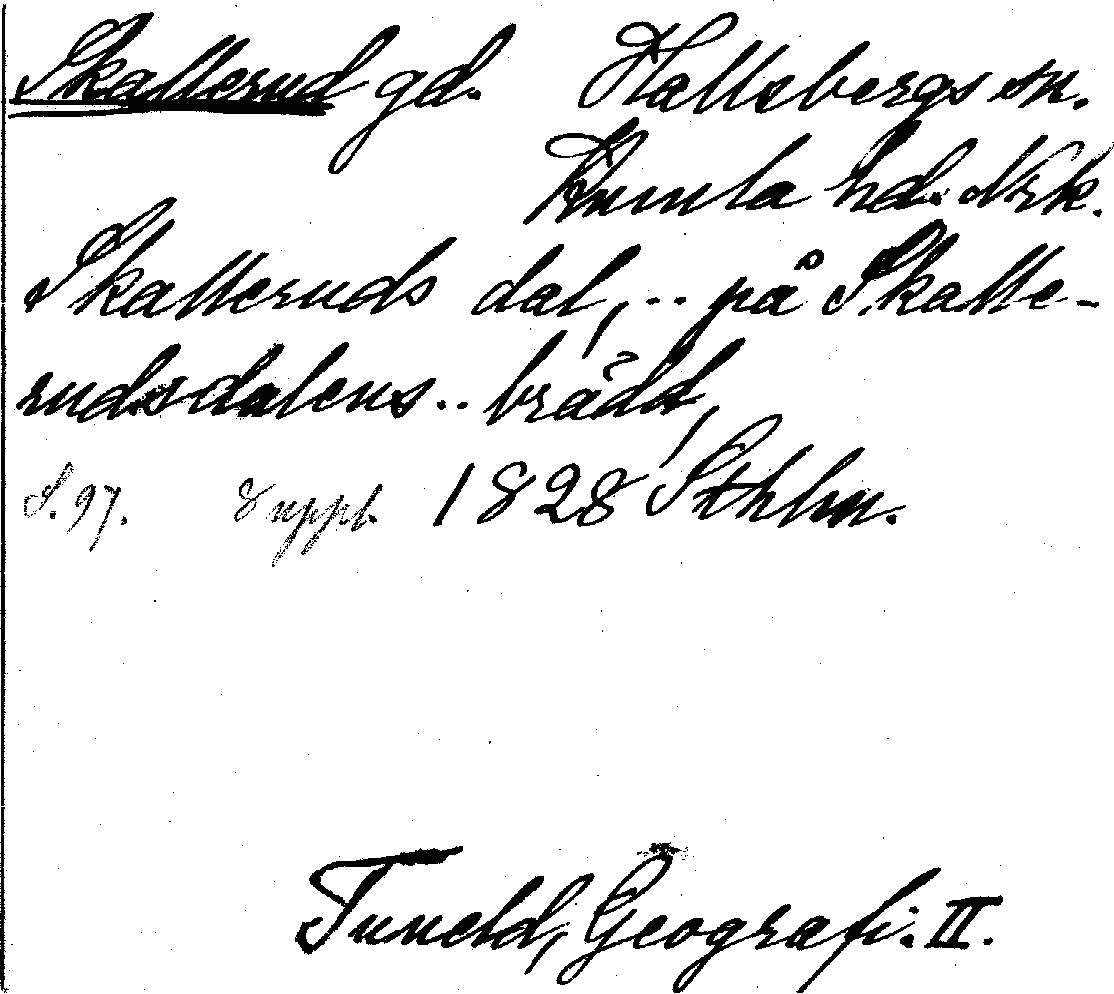 Skallerud gd. Hallsbergs sn.
Kumla hd. Nrk.
Skalleruds dal, .. på Skalle-
rudsdalens .. brädd,
S. 97. Suppl. 1828 Sthlm.
Tuneld, Geografi. II.